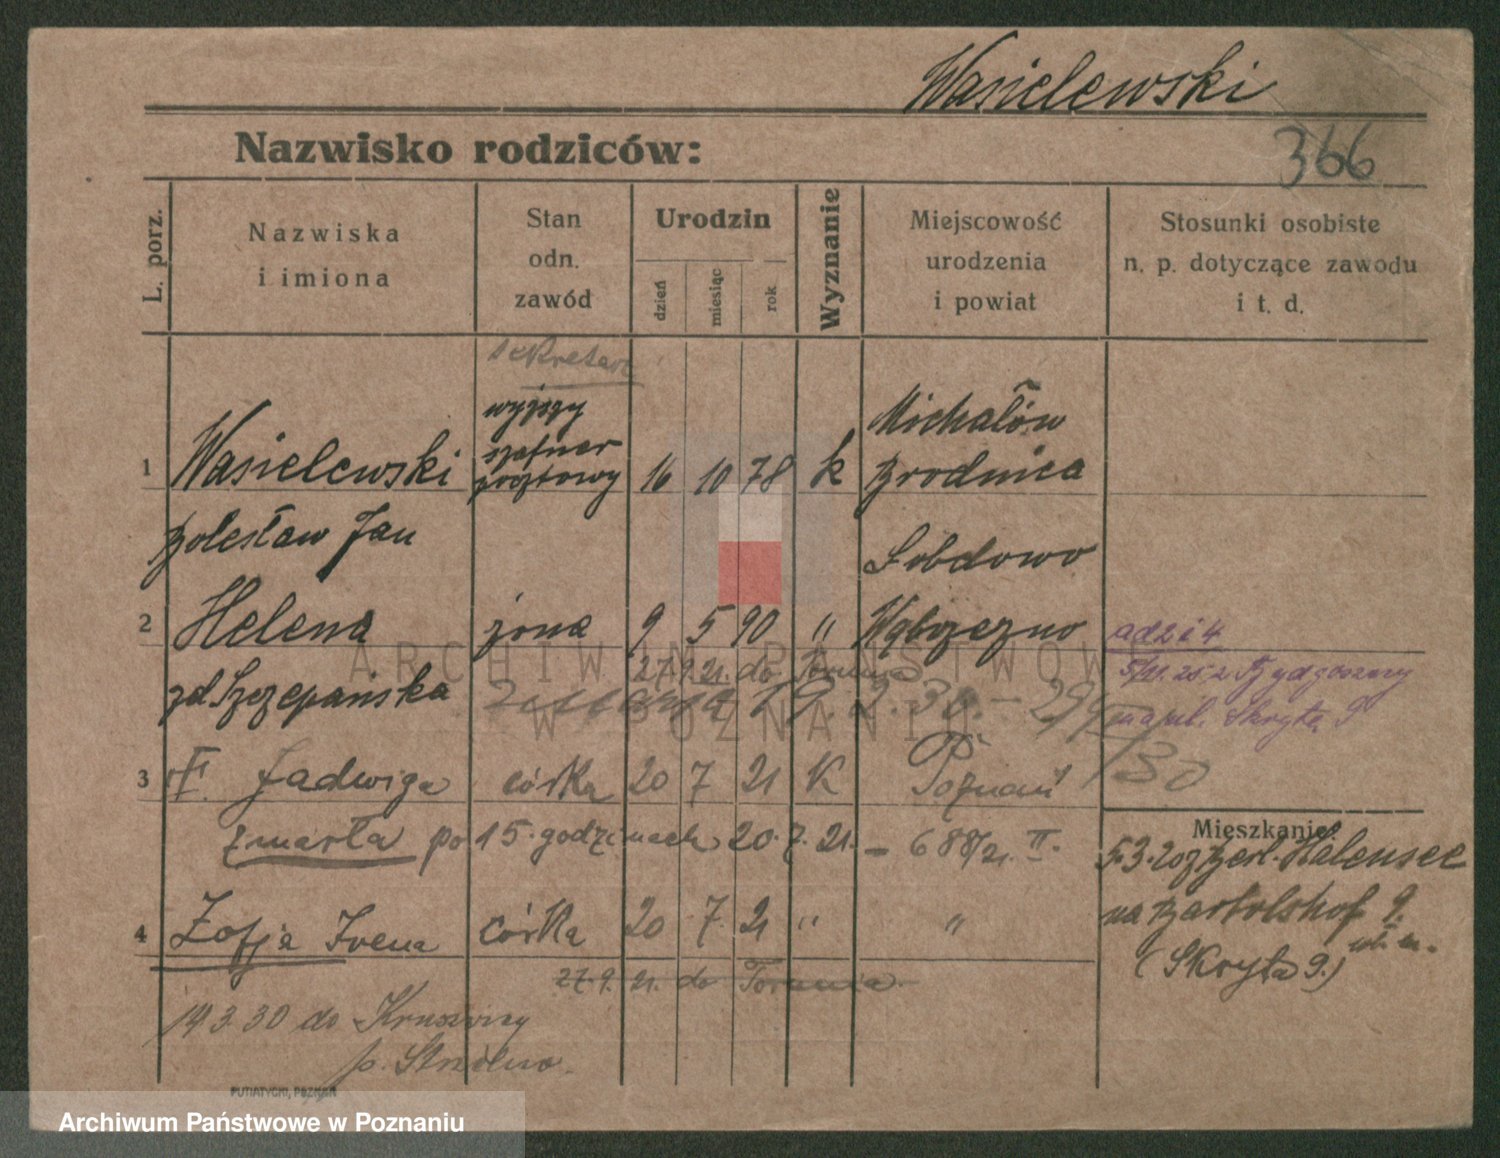 Wasielewski
Nazwisko rodziców:
366
L. porz.
Nazwiska
i imiona
Stan
odn.
zawód
Urodzin
dzień
miesiąc
rok
Wyznanie
Miejscowość
urodzenia
i powiat
Stosunki osobiste
n. p. dotyczące zawodu
i t. d.
sekretarz
wyższy
szafner
pocztowy
Michałów
1 Wasielewski 16 10 78 k Brodnica
Bolesław Jan
Łobdowo
2 Helena żona 9 5 90 " Wąbrzeźno
ad 2 i 4
27.9.21. do Torunia
5/11. 25. z Bydgoszczy
zd Szczepańska
zmarła 19. 2. 30. - 299
na ul. Skryta 9
/30
3 Jadwiga córka 20 7 21 K Poznań
zmarła po 15 godzinach 20. 7. 21. - 688/21. II.
Mieszkanie:
5.3.20 z Berl. Halensee
na Bartolshof 9.
(Skryta 9.)
4 Zofja Irena córka 20 7 21 " "
27.9. 21. do Torunia.
14 3. 30 do Kruszwicy
p. Strzelno.
PUTIATYCKI, POZNAŃ
ARCHIWUM PAŃSTWOWE
W POZNANIU
Archiwum Państwowe w Poznaniu